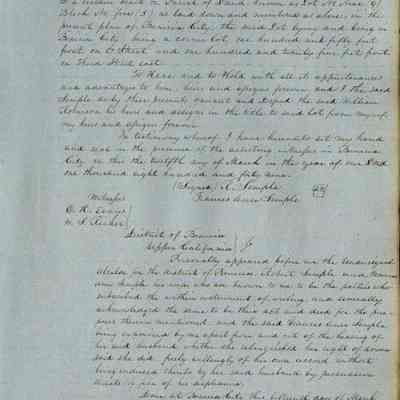 to a certain ... Parcel of Land known as Lot No. Nine (9)
Block No. four (4) as laid down and numbered as above, in the
present plan of Benicia City, the said Lot lying and being in
Benicia City being a corner lot one hundred and fifty feet
front on C Street and one hundred and twenty five feet front
on Third Street east.
To Have and to Hold with all its appurtenances
and advantages to him, heirs and assigns forever and I the said
Temple do by these presents warrant and defend the said William
Robinson his heirs and assigns in the title to said Lot from myself
my heirs and assigns forever
In testimony whereof I have hereunto set my hand
and seal in the presence of the assisting witnesses in Benicia
City on this the twelfth day of March in the year of our Lord
one thousand eight hundred and fifty
(Signed) R. Semple
Frances Ann Semple
Witnesses
District of Benicia
Upper California
Personally appeared before me the Undersigned
Alcalde for the district of Benicia, Robert Semple and Frances
Ann Semple his wife who are known to me to be the parties who
subscribed the within instrument of writing, and severally
acknowledged the same to be their act and deed for the pur
poses therein mentioned, and the said Frances Ann Semple
being examined by me apart from and out of the hearing of
her said husband whether she relinquished her right of dower
said she did freely willingly of her own accord without
being induced thereto by her said husband by persuasion
threats or fear of his displeasure.
Done at Benicia City this day of March